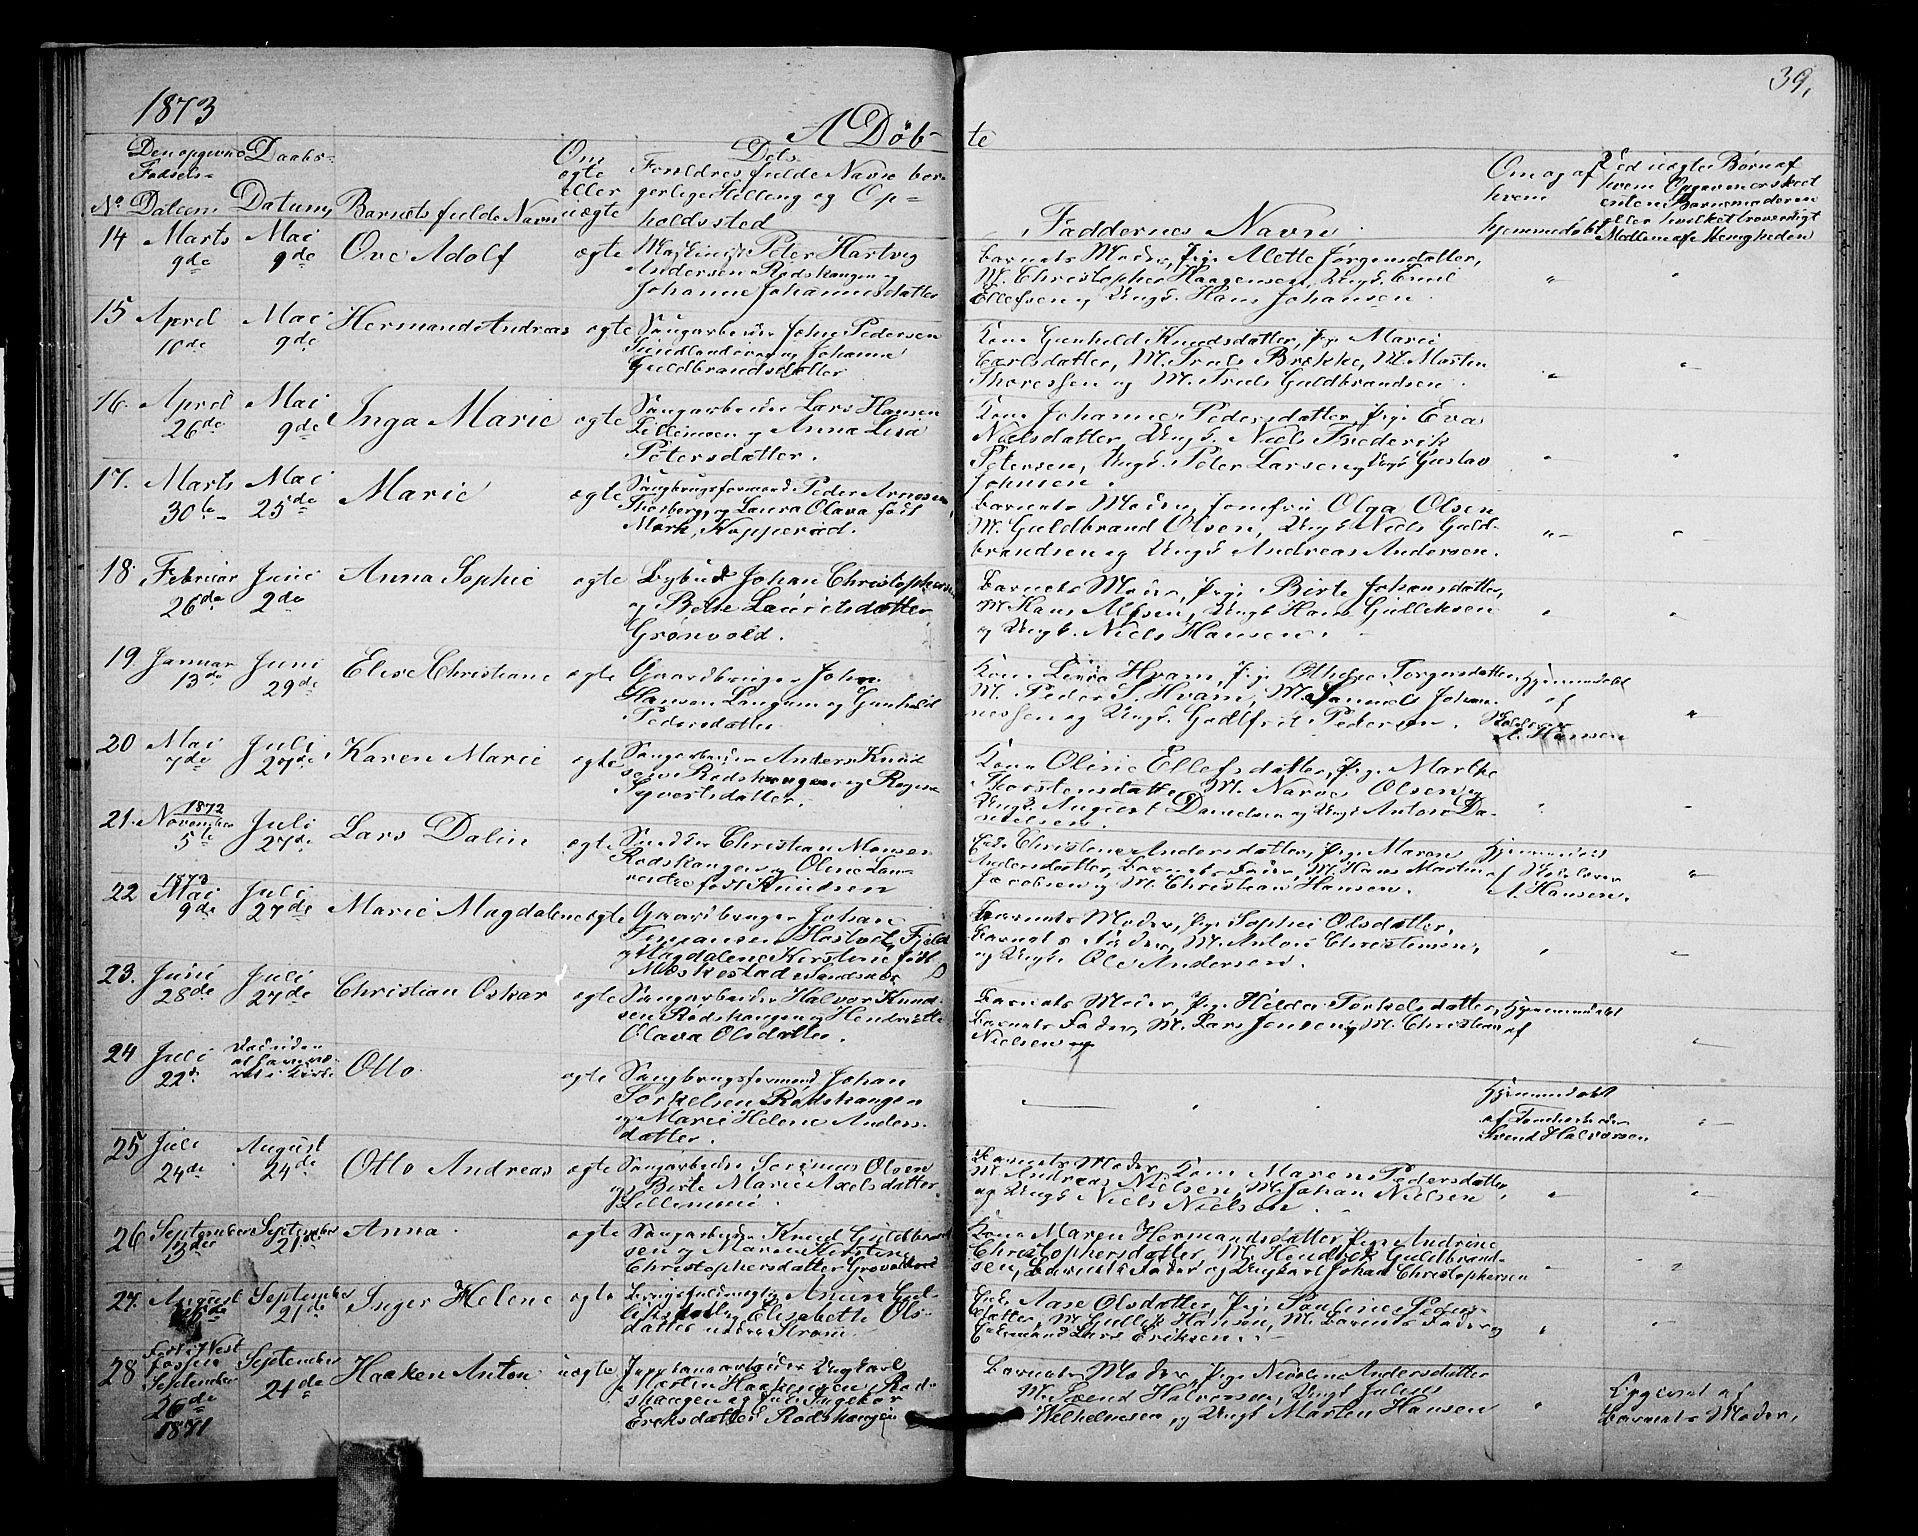 1873
39,
A Døb-
te
Den opgivne
Fødsels-
Datum
Daabs-
Datum,
No
Barnets fulde Navn
Om
ægte
eller
uægte
Dets
Forældres fulde Navn bor-
gerlige Stilling og Op-
holdssted
Faddernes Navne
Om og af
hvem
hjemmedøbt
Ved uægte Børn af
hvem Opgaven er skeet
enten Barnemoderen
eller hvilket troværdigt
Medlem af Menigheden
14 Marts
9de
Mai
9de
Ove Adolf
ægte
Maskinist Peter Hartvig
Andersen Rødskangen og
Johanne Johannesdatter
Barnets Moder, Pige Alette Jørgensdatter,
M. Christopher Haagensen, Ungk. Emil
Ellefsen og Ungk. Hans Johansen.
15 April
10de
Mai
9de
Hermand Andreas
ægte
Saugarbeider John Pedersen
og Johanne
Guldbrandsdatter
Kone Gunhild Knudsdatter, Pige Marie
Carlsdatter, M. Truls Brække, M. Marten
Thoressen og M. Truls Guldbrandsen.
16. April
26de
Mai
9de
Inga Marie
ægte
Saugarbeider Lars Hansen
Lillemoen og Anna Lisa
Petersdatter.
Kone Johanne Pedersdatter, Pige Eva
Nielsdatter, Ungk. Niels Frederik
Petersen, Ungk. Peter Larsen og Ungk Gustav
Johnsen.
17. Marts
30te
Mai
25de
Marie
ægte
Saugbrugsformand Peder Arnesen
Thorberg, og Laura Olava født
Mørk, Kopperød.
Barnets Moder, Jomfru Olga Olsen
M. Guldbrand Olsen, Ungk Niels Guld-
brandsen og Ungk Andreas Andersen.
18 Februar
26de
Juni
2de
Anna Sophie
ægte
Johan Christophersen
og Berte Lauritsdatter
Grønvold.
Barnets Moder, Pige Birte Johansdatter,
M. Hans Alfsen, Ungk Hans Gulliksen
og Ungk. Niels Hansen.
19. Januar
13de
Juni
29de
Elise Christiane
ægte
Gaardbruger Johan
Hansen Langum og Gunhild
Pedersdatter
Kone Hvam, Pige Othelie Torgersdatter
M. Peder S. Hvam, M. Samuel Johan-
nessen og Ungk. Godtfred Pedersen.
Hjemmedøbt
af
A. Hansen
20 Mai
7de
Juli
27de
Karen Marie
ægte
Saugarbeider Anders Knud-
sen Rødskangen og Ragna
Syvertsdatter.
Kone Oline Ellefsdatter, Pige Marthe
Thorstensdatter M. Narve Olsen og
Ungk. August Danielsen og Ungk Anton Da-
nielsen.
21. 1872
November
5te
Juli
27de
Lars Dalin
ægte
Christian Monsen
Rødskangen og Oline Lau-
født Knudsen
Christine Andersdatter, Pige Maren
Andersdatter, Barnets Fader, M. Hans Martin
Jacobsen og M. Christian Hansen.
Hjemmedøbt
af
A. Hansen.
22 1873
Mai
9de
Juli
27de
Marie Magdalene
ægte
Gaardbruger Johan
Hostvet, Fjeld
og Magdalene Kirstine født
Moskestad Sandsvær
Barnets Moder, Pige Sophie Olsdatter,
Barnets Fader, M. Anton Christensen,
og Ungk Ole Andersen.
23. Juni
28de
Juli
27de
Christian Oskar
ægte
Saugarbeider Halvor Knud-
sen Rødskangen og Hendriette
Olava Olsdatter
Barnets Moder, Pige Hilda Torkelsdatter,
Barnets Fader, M. Lars Jensen, M. Christian
Nielsen og
Hjemmedøbt
af
24 Juli
22de
Otto
ægte
Saugbrugsformand Johan
Torkelsen Rødskangen
og Marie Helene Anders-
datter.
Hjemmedøbt
af Tømmermand
Svend Halvorsen
25 Juli
24de
August
24de
Otto Andreas
ægte
Saugarbeider Serinus Olsen
og Birte Marie Axelsdatter
Lillemoen
Barnets Moder, Kone Maren Pedersdatter
M. Andreas Nielsen, M. Johan Nielsen
og Ungk Niels Nielsen.
26 September
13de
September
21de
Anna.
ægte
Saugarbeider Knud Guldbrand-
sen og Maren Kirstine
Christophersdatter
Kone Maren Hermandsdatter, Pige Andrine
Christophersdatter, M. Hendrik Guldbrand-
sen, Barnets Fader og Ungkarl Johan Christophersen
27. August
September
21de
Inger Helene
ægte
Anton Gul-
liksen og Elisabeth Ols-
datter Strøm.
Enke Aase Olsdatter, Pige Pauline Peders-
datter, M. Gullik Hansen, M. Barnets Fader og
Enkemand Lars Eriksen.
28 Født i Vest
Fossen
September
26de
1871
September
21de
Haaken Anton
uægte
Ungkarl
Martin Haagensen, Rød-
skangen og Juli Ingeborg
Eriksdatter Rødskangen
Barnets Moder, Pige Nicoline Andersdatter
M. Svend Halvorsen, Ungk Julius
Wilhelmsen, og Ungk Marten Hansen
Opgivet af
Barnets Moder,